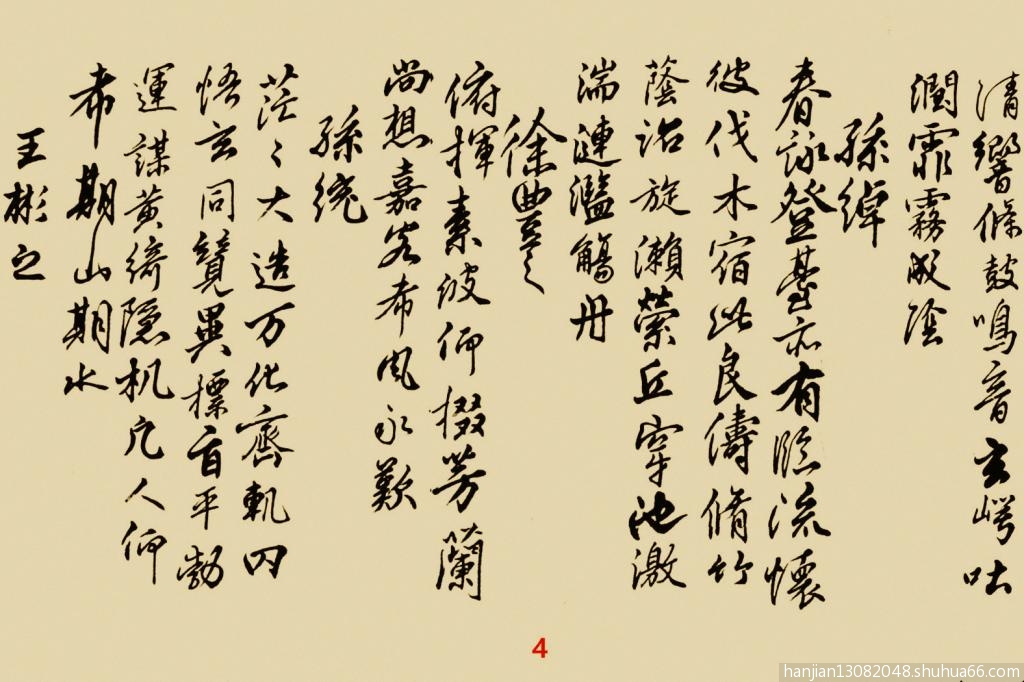 清響條鼓鳴音玄崿吐
潤霏霧成陰
孫綽
春詠登臺亦有臨流懷
彼伐木宿此良儔脩竹
蔭沼旋瀨縈丘穿池激
湍漣濫觴舟
徐豐之
俯揮素波仰掇芳蘭
尚想嘉客希風永歎
孫統
茫々大造万化齊軌罔
悟玄同競異標旨平勃
運謀黄綺隐机凡人仰
希期山期水
王彬之
4
hanjian13082048.shuhua66.com